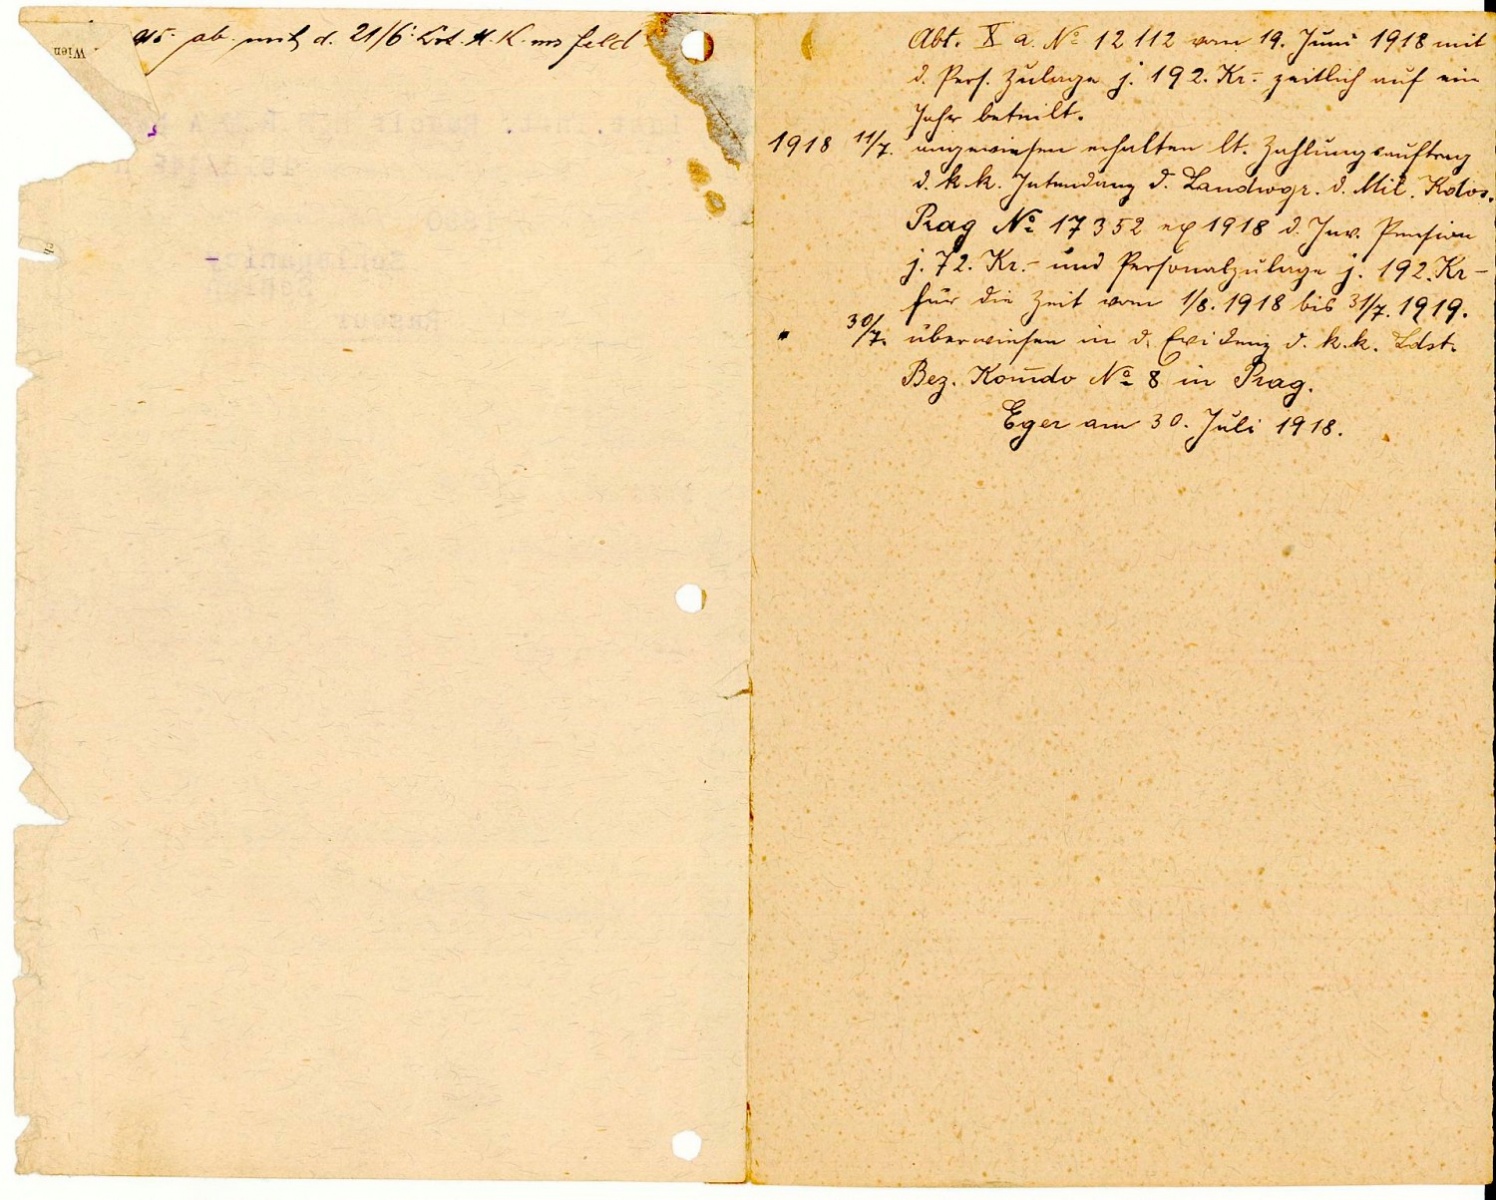 915. ab. mit d. 21/6. Lst. K. ins feld
Wien
Abt. X a. № 12112 vom 19. Juni 1918 mit
d. Pers. Zulage j. 192. Kr.- zeitlich auf ein
Jahr beteilt.
1918 11/7. angewiesen erhalten lt. Zahlungsauftrag
d. k.k. Intendanz d. Landwgr. d. Mil. Kdos.
Prag № 17352 ex 1918 d. Inv. Pension
j. 72. Kr.- und Personalzulage j. 192. Kr-
für die Zeit vom 1/8. 1918 bis 31/7. 1919.
" 30/7. überwiesen in d. Evidenz d. k.k. Ldst.
Bez. Komdo № 8 in Prag.
Eger am 30. Juli 1918.